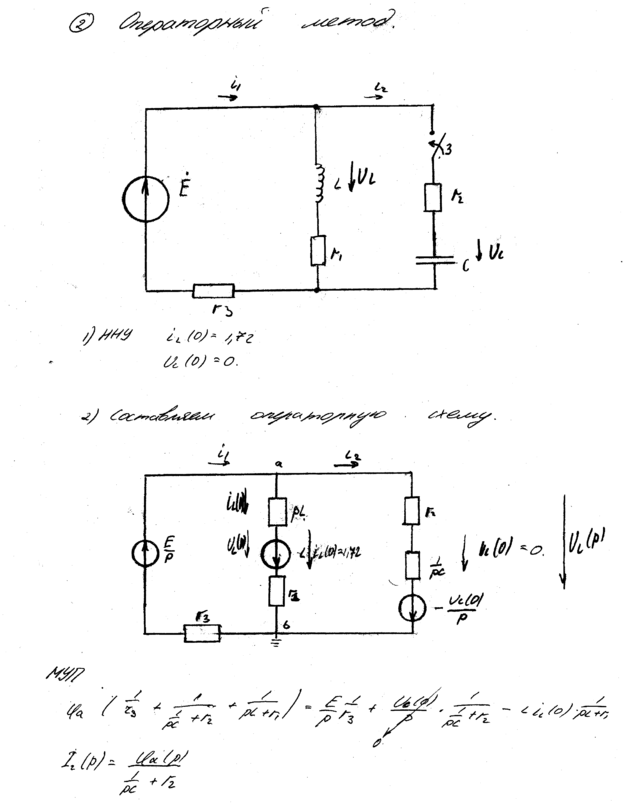 ② Операторный метод.
i₁ i₂
Ė L U_L 3
r₂
r₁ C U_c
r₃
1) ННУ i_L(0) = 1,72
U_c(0) = 0.
2) Составляем операторную схему.
i₁ a i₂
i_L(0) pL
E/p U_L(0) L i_L(0)=1,72 1/pC U_c(0) = 0. U_c(p)
r₃ б - U_c(0)/p
МУП
φa (1/r₃ + 1/(1/pC + r₂) + 1/(pL+r₁)) = E/p 1/r₃ + U_c(0)/p · 1/(1/pC + r₂) - L i_L(0) · 1/(pL+r₁)
0
I₂(p) = φa(p)/(1/pC + r₂)